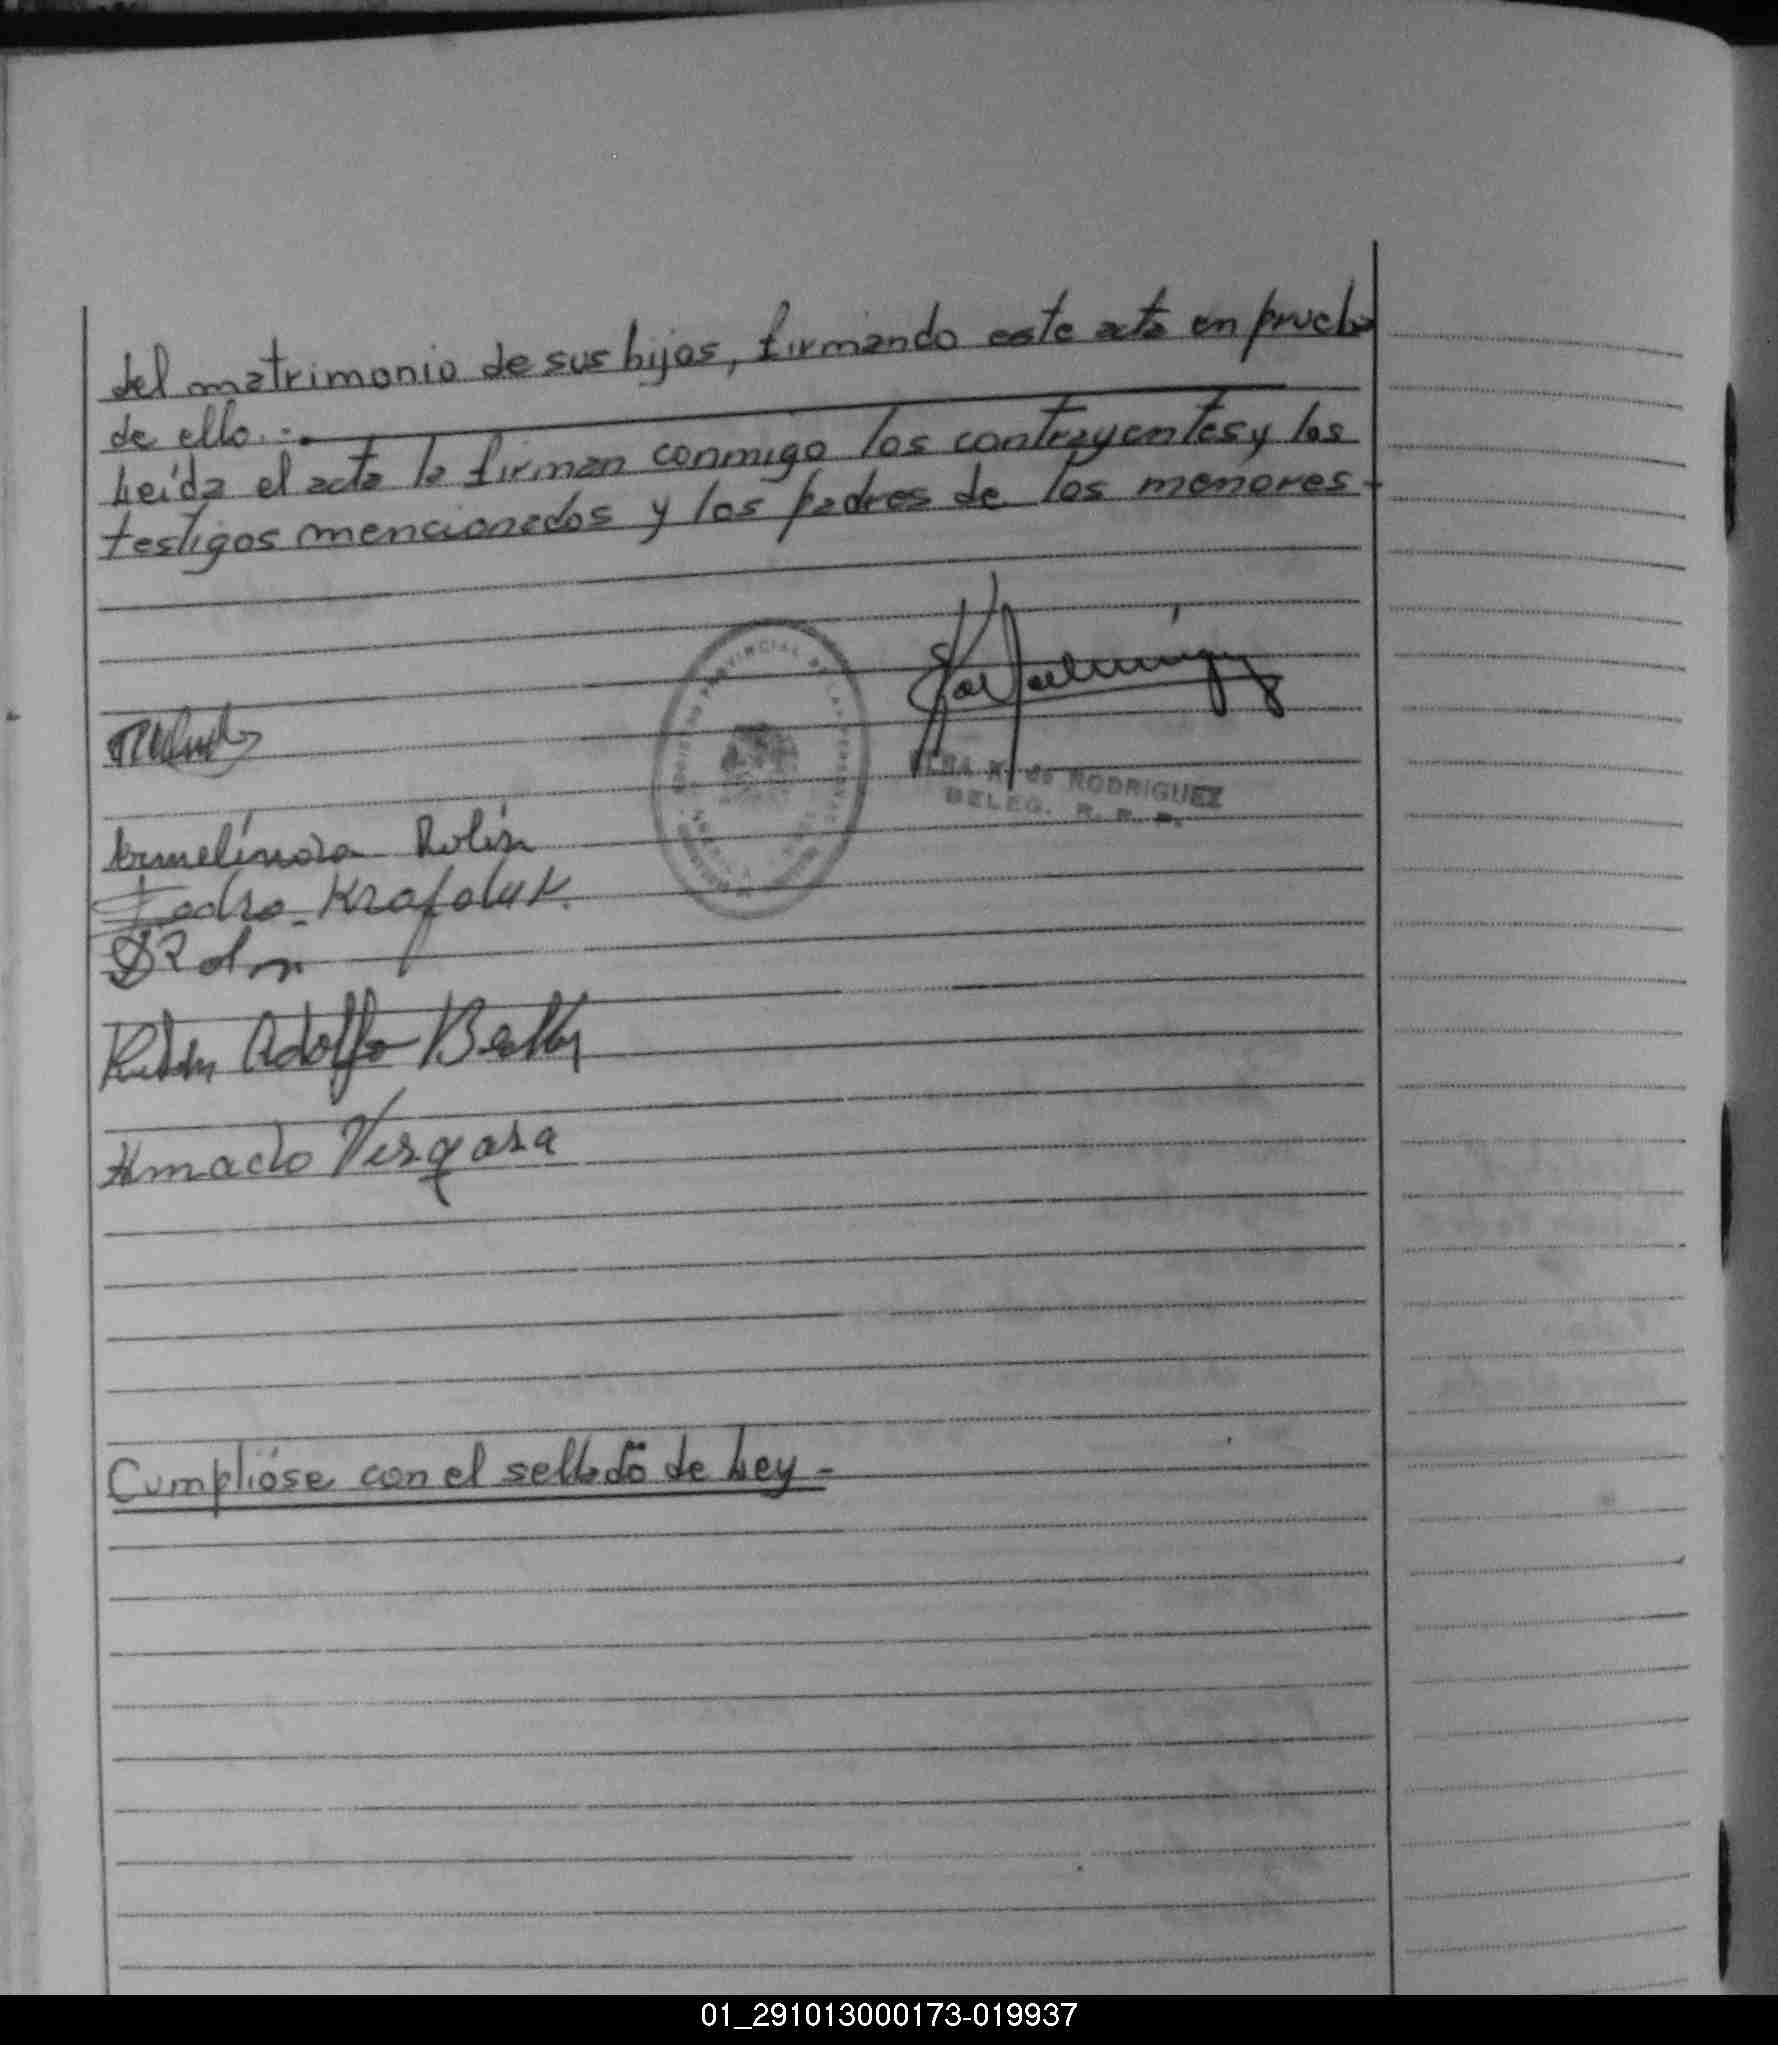 del matrimonio de sus hijos, firmando este acta en prueba
de ello.-
Leída el acta la firman conmigo los contrayentes y los
testigos mencionados y los padres de los menores-
PROVINCIAL DE LAS PERSONAS
de RODRIGUEZ
DELEG. R. P. P.
Ermelinda Rolón
Pedro Krafoluk.
Rubén Adolfo
Amado Vergara
Cumplióse con el sellado de Ley -
01_291013000173-019937